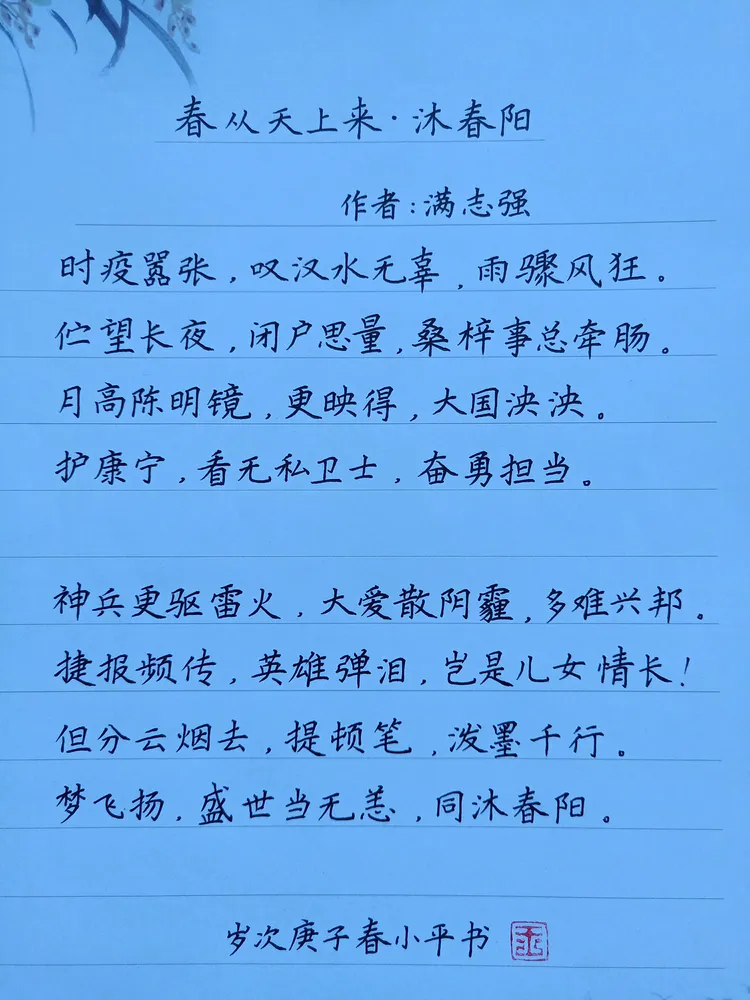 春从天上来·沐春阳
作者:满志强
时疫嚣张,叹汉水无辜,雨骤风狂。
伫望长夜,闭户思量,桑梓事总牵肠。
月高陈明镜,更映得,大国泱泱。
护康宁,看无私卫士,奋勇担当。
神兵更驱雷火,大爱散阴霾,多难兴邦。
捷报频传,英雄弹泪,岂是儿女情长!
但分云烟去,提顿笔,泼墨千行。
梦飞扬,盛世当无恙,同沐春阳。
岁次庚子春小平书